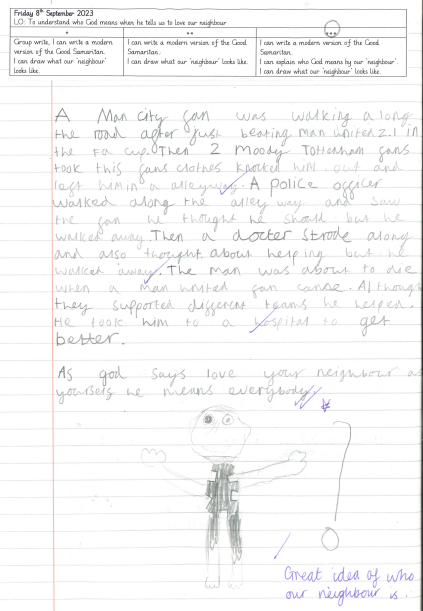 Friday 8th September 2023
LO: To understand who God means when he tells us to love our neighbour
*
Group write, I can write a modern
version of the Good Samaritan.
I can draw what our 'neighbour'
looks like.
**
I can write a modern version of the Good
Samaritan.
I can draw what our 'neighbour' looks like.
***
I can write a modern version of the Good
Samaritan.
I can explain who God means by our 'neighbour'.
I can draw what our 'neighbour' looks like.
A Man City fan was walking along
the road after just beating man united 2.1 in
the Fa cup. Then 2 Moody Tottenham fans
took this fans clothes knocked him out and
left him in a alleyway. A Police officer
walked along the alley way and saw
the fan he thought he should but he
walked away. Then a docter strode along
and also thought about helping but he
walked away. The man was about to die
when a man united fan came. Although
they supported different teams he helped.
He took him to a hospital to get
better.
As god says love your neighbour as
yourself he means everybody
?
Great idea of who
our neighbour is.